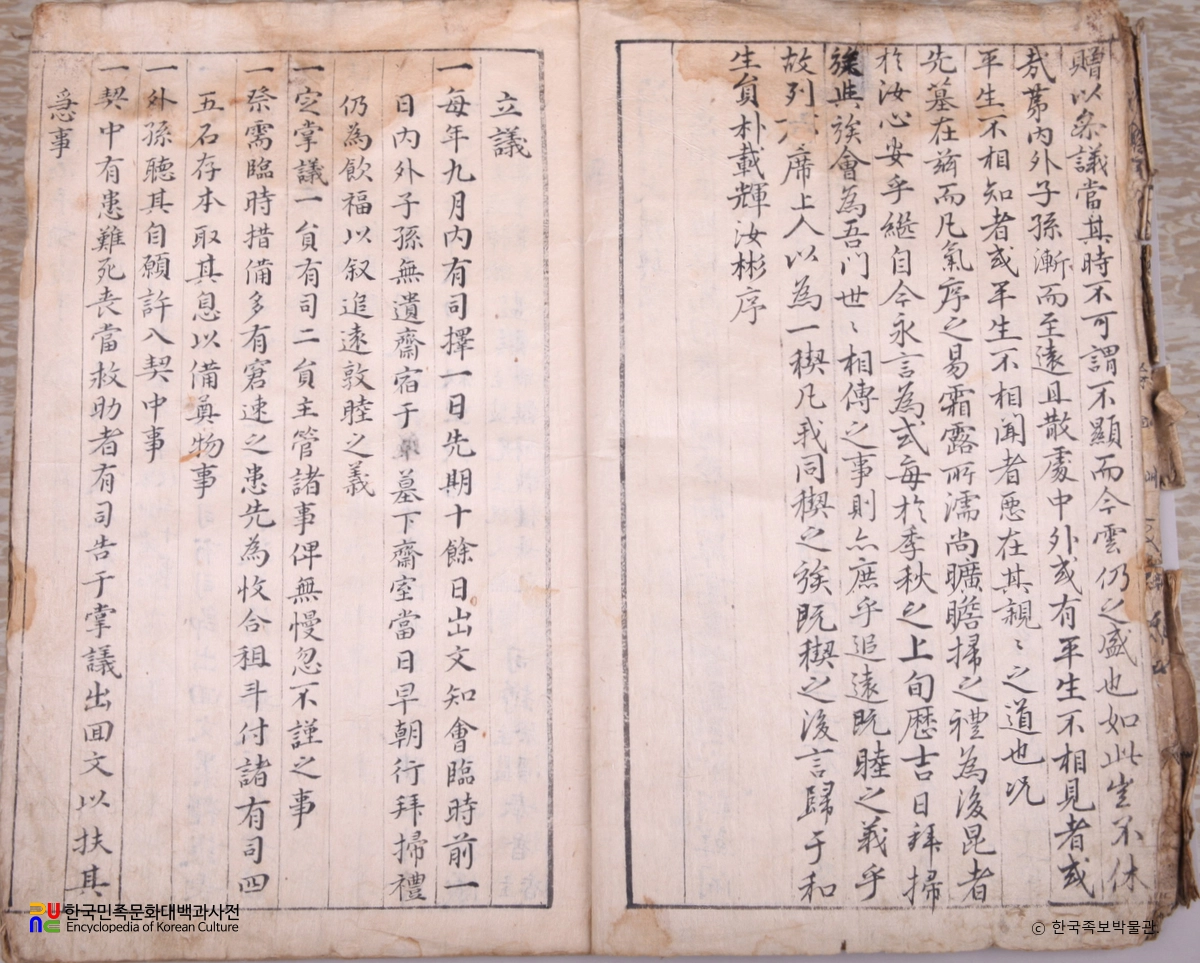 贈以參議當其時不可謂不顯而今雲仍之盛也如此豈不休
哉第內外子孫漸而至遠且散處中外或有平生不相見者或
平生不相知者或平生不相聞者惡在其親〻之道也況
先墓在茲而凡氣序之易霜露所濡尚曠瞻掃之禮為後昆者
於汝心安乎繼自今永言為式每於季秋之上旬歷吉日拜掃
族與族會為吾門世〻相傳之事則亦庶乎追遠既睦之義乎
故列 席上人以為一稧凡我同稧之族既稧之後言歸于和
生員朴載輝汝彬序
立議
一每年九月內有司擇一日先期十餘日出文知會臨時前一
日內外子孫無遺齋宿于 墓下齋室當日早朝行拜掃禮
仍為飮福以叙追遠敦睦之義
一定掌議一員有司二員主管諸事俾無慢忽不謹之事
一祭需臨時措備多有窘速之患先為收合租斗付諸有司四
五石存本取其息以備奠物事
一外孫聽其自願許入契中事
一契中有患難死喪當救助者有司告于掌議出回文以扶其
急事
한국민족문화대백과사전
Encyclopedia of Korean Culture
ⓒ 한국족보박물관